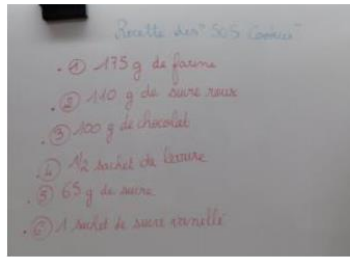 Recette des "SOS Cookies"
. ① 175 g de farine
. ② 110 g de sucre roux
. ③ 100 g de chocolat
. ④ 1/2 sachet de levure
. ⑤ 65 g de sucre
. ⑥ 1 sachet de sucre vanillé